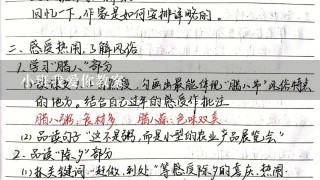 回忆一下，作家是如何安排详略的。
二、感受热闹，了解风俗
1. 学习“腊八”部分
小班我爱你教案
勾画出最能体现“腊八节”风俗特点
的地方。结合自己过年的感受作批注
腊八粥：食材多 腊八蒜：色味双美
(2) 品读句子“这不是粥，而是小型的农业产品展览会”
2. 品读“除夕”部分
(1) 抓关键词“赶做、到处”等感受除夕的喜庆、热闹